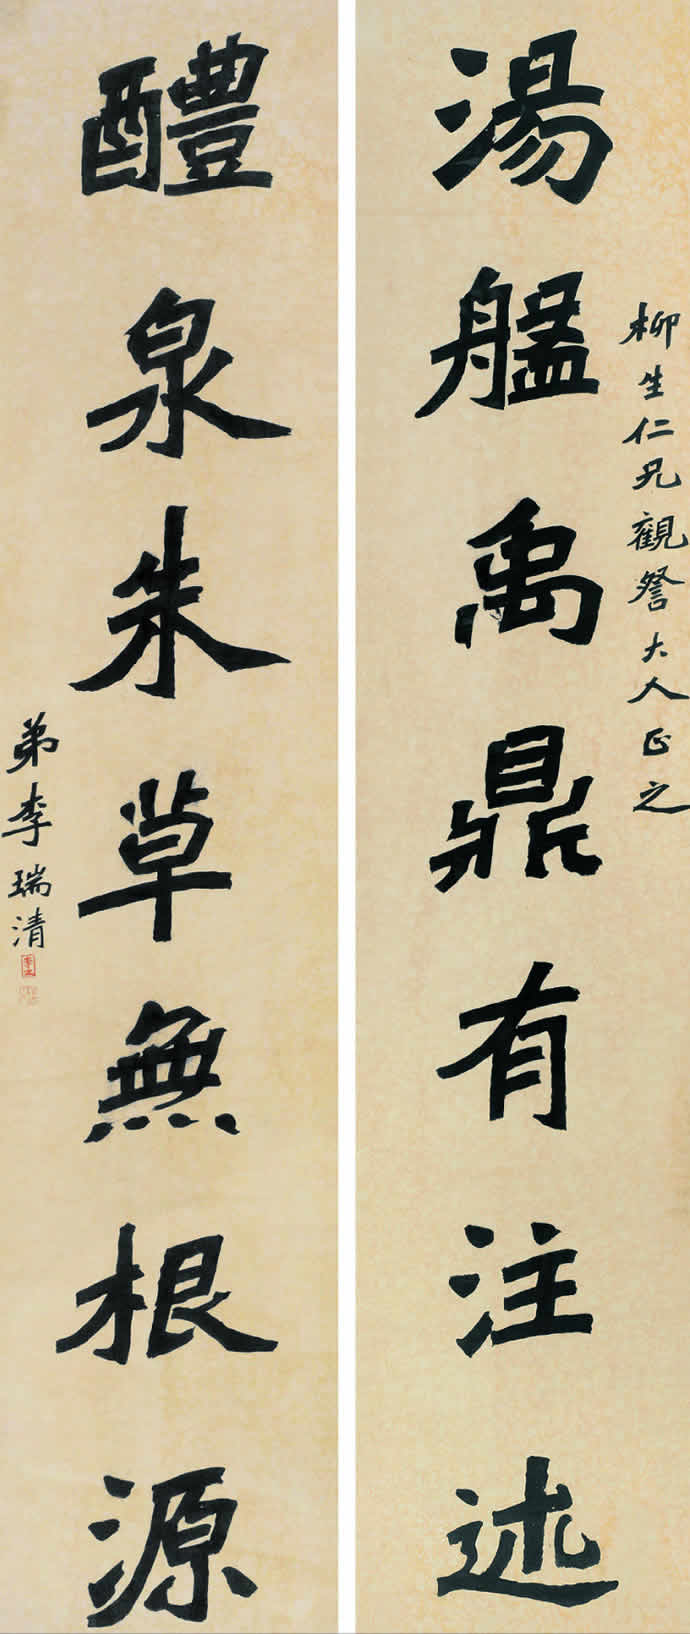 湯盤禹鼎有注述
柳生仁兄觀詧大人正之
醴泉朱草無根源
弟李瑞清